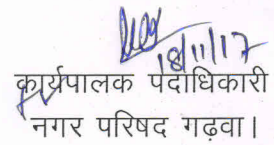 18/11/17
कार्यपालक पदाधिकारी
नगर परिषद गढ़वा।